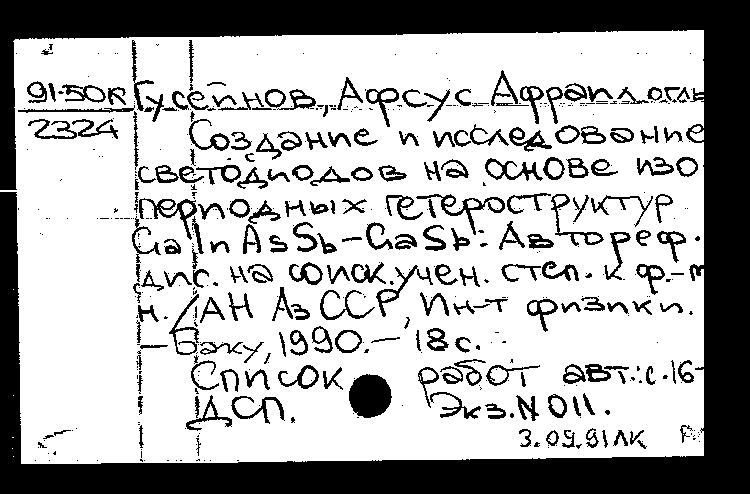 91-50к Гусейнов, Афсус Афрапл оглы
2324 Создание и исследование
светодиодов на основе изо
периодных гетероструктур
GaInAsSb-GaSb: Автореф.
дис. на соиск. учен. степ. к ф.-м
н. / АН АзССР, Ин-т физики.
- Баку, 1990. - 18 с.
Список работ авт.: с. 16-
ДСП. Экз. N 011.
3.09.91 ЛК